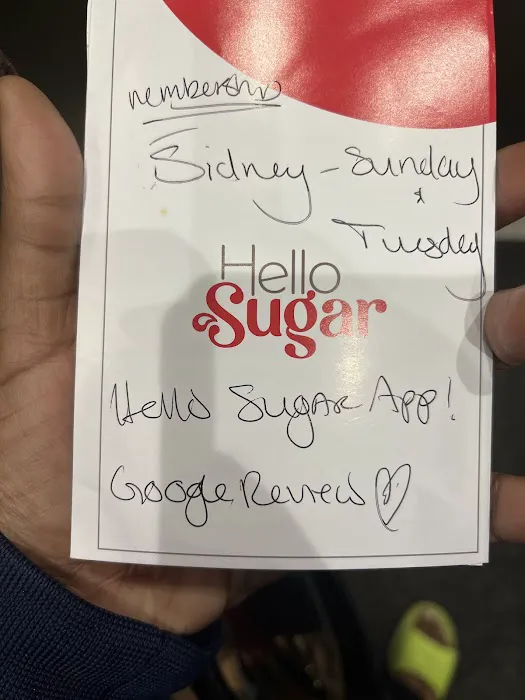 membership
Sidney - Sunday
&
Tuesday
Hello
Sugar
Hello Sugar App!
Google Review